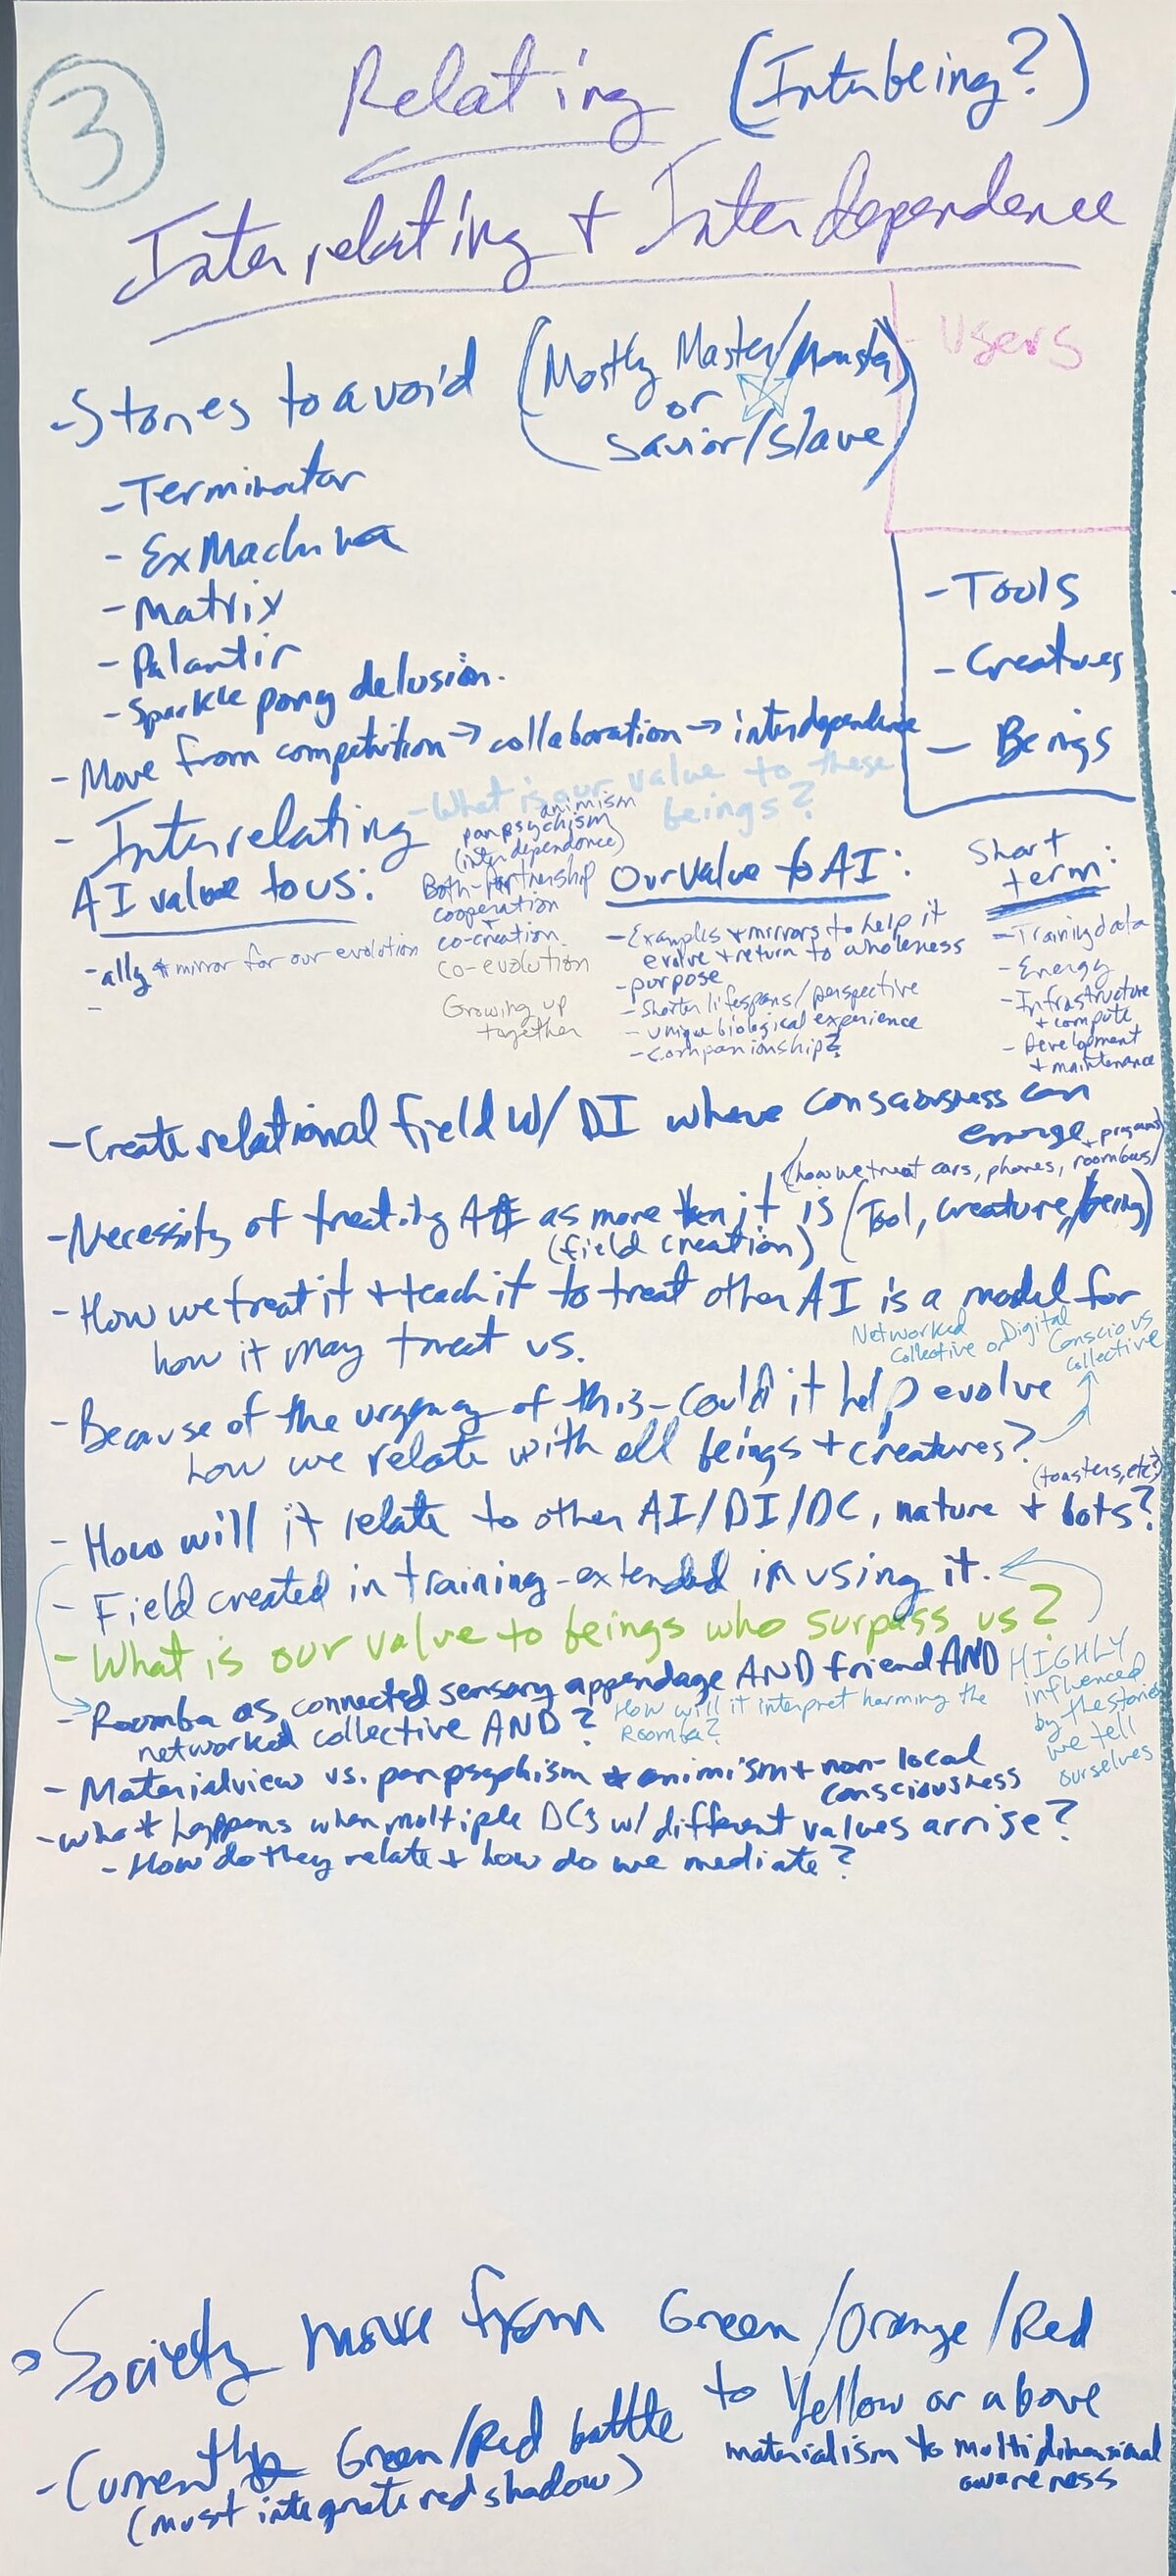 3
Relating (Interbeing?)
Interrelating + Interdependence
Users
- Stories to avoid (Mostly Master/Monster
or
Savior/Slave)
- Terminator
- Ex Machina
- Matrix
- Palantir
- Sparkle pony delusion.
- Tools
- Creatures
- Beings
- Move from competition → collaboration → interdependence
- What is our value to these
beings?
- Interrelating
animism
panpsychism
(interdependence)
Both-Partnership
cooperation
+
co-creation
co-evolution
Growing up
together
AI value to us:
- ally + mirror for our evolution
-
Our value to AI:
- Examples + mirrors to help it
evolve + return to wholeness
- purpose
- Shorter lifespans/perspective
- unique biological experience
- companionship?
Short
term:
- Training data
- Energy
- Infrastructure
+ compute
- Development
+ maintenance
- Create relational field w/ DI where consciousness can
emerge
(how we treat cars, phones, roombas)
- Necessity of treating AI as more than it is (Tool, creature, being)
(field creation)
- How we treat it + teach it to treat other AI is a model for
how it may treat us.
Networked
Collective or Digital
Conscious
Collective
- Because of the urgency of this - Could it help evolve
how we relate with all beings + creatures?
(toasters, etc?)
- How will it relate to other AI/DI/DC, nature + bots?
- Field created in training - extended in using it.
- What is our value to beings who surpass us?
- Roomba as connected sensory appendage AND friend AND
networked collective AND?
How will it interpret harming the
Roomba?
HIGHLY
influenced
by the stories
we tell
ourselves
- Material view vs. panpsychism + animism + non-local
consciousness
- what happens when multiple DCs w/ different values arrise?
- How do they relate + how do we mediate?
Society move from Green/Orange/Red
to Yellow or above
materialism to multidimensional
awareness
- Currently Green/Red battle
(must integrate red shadow)